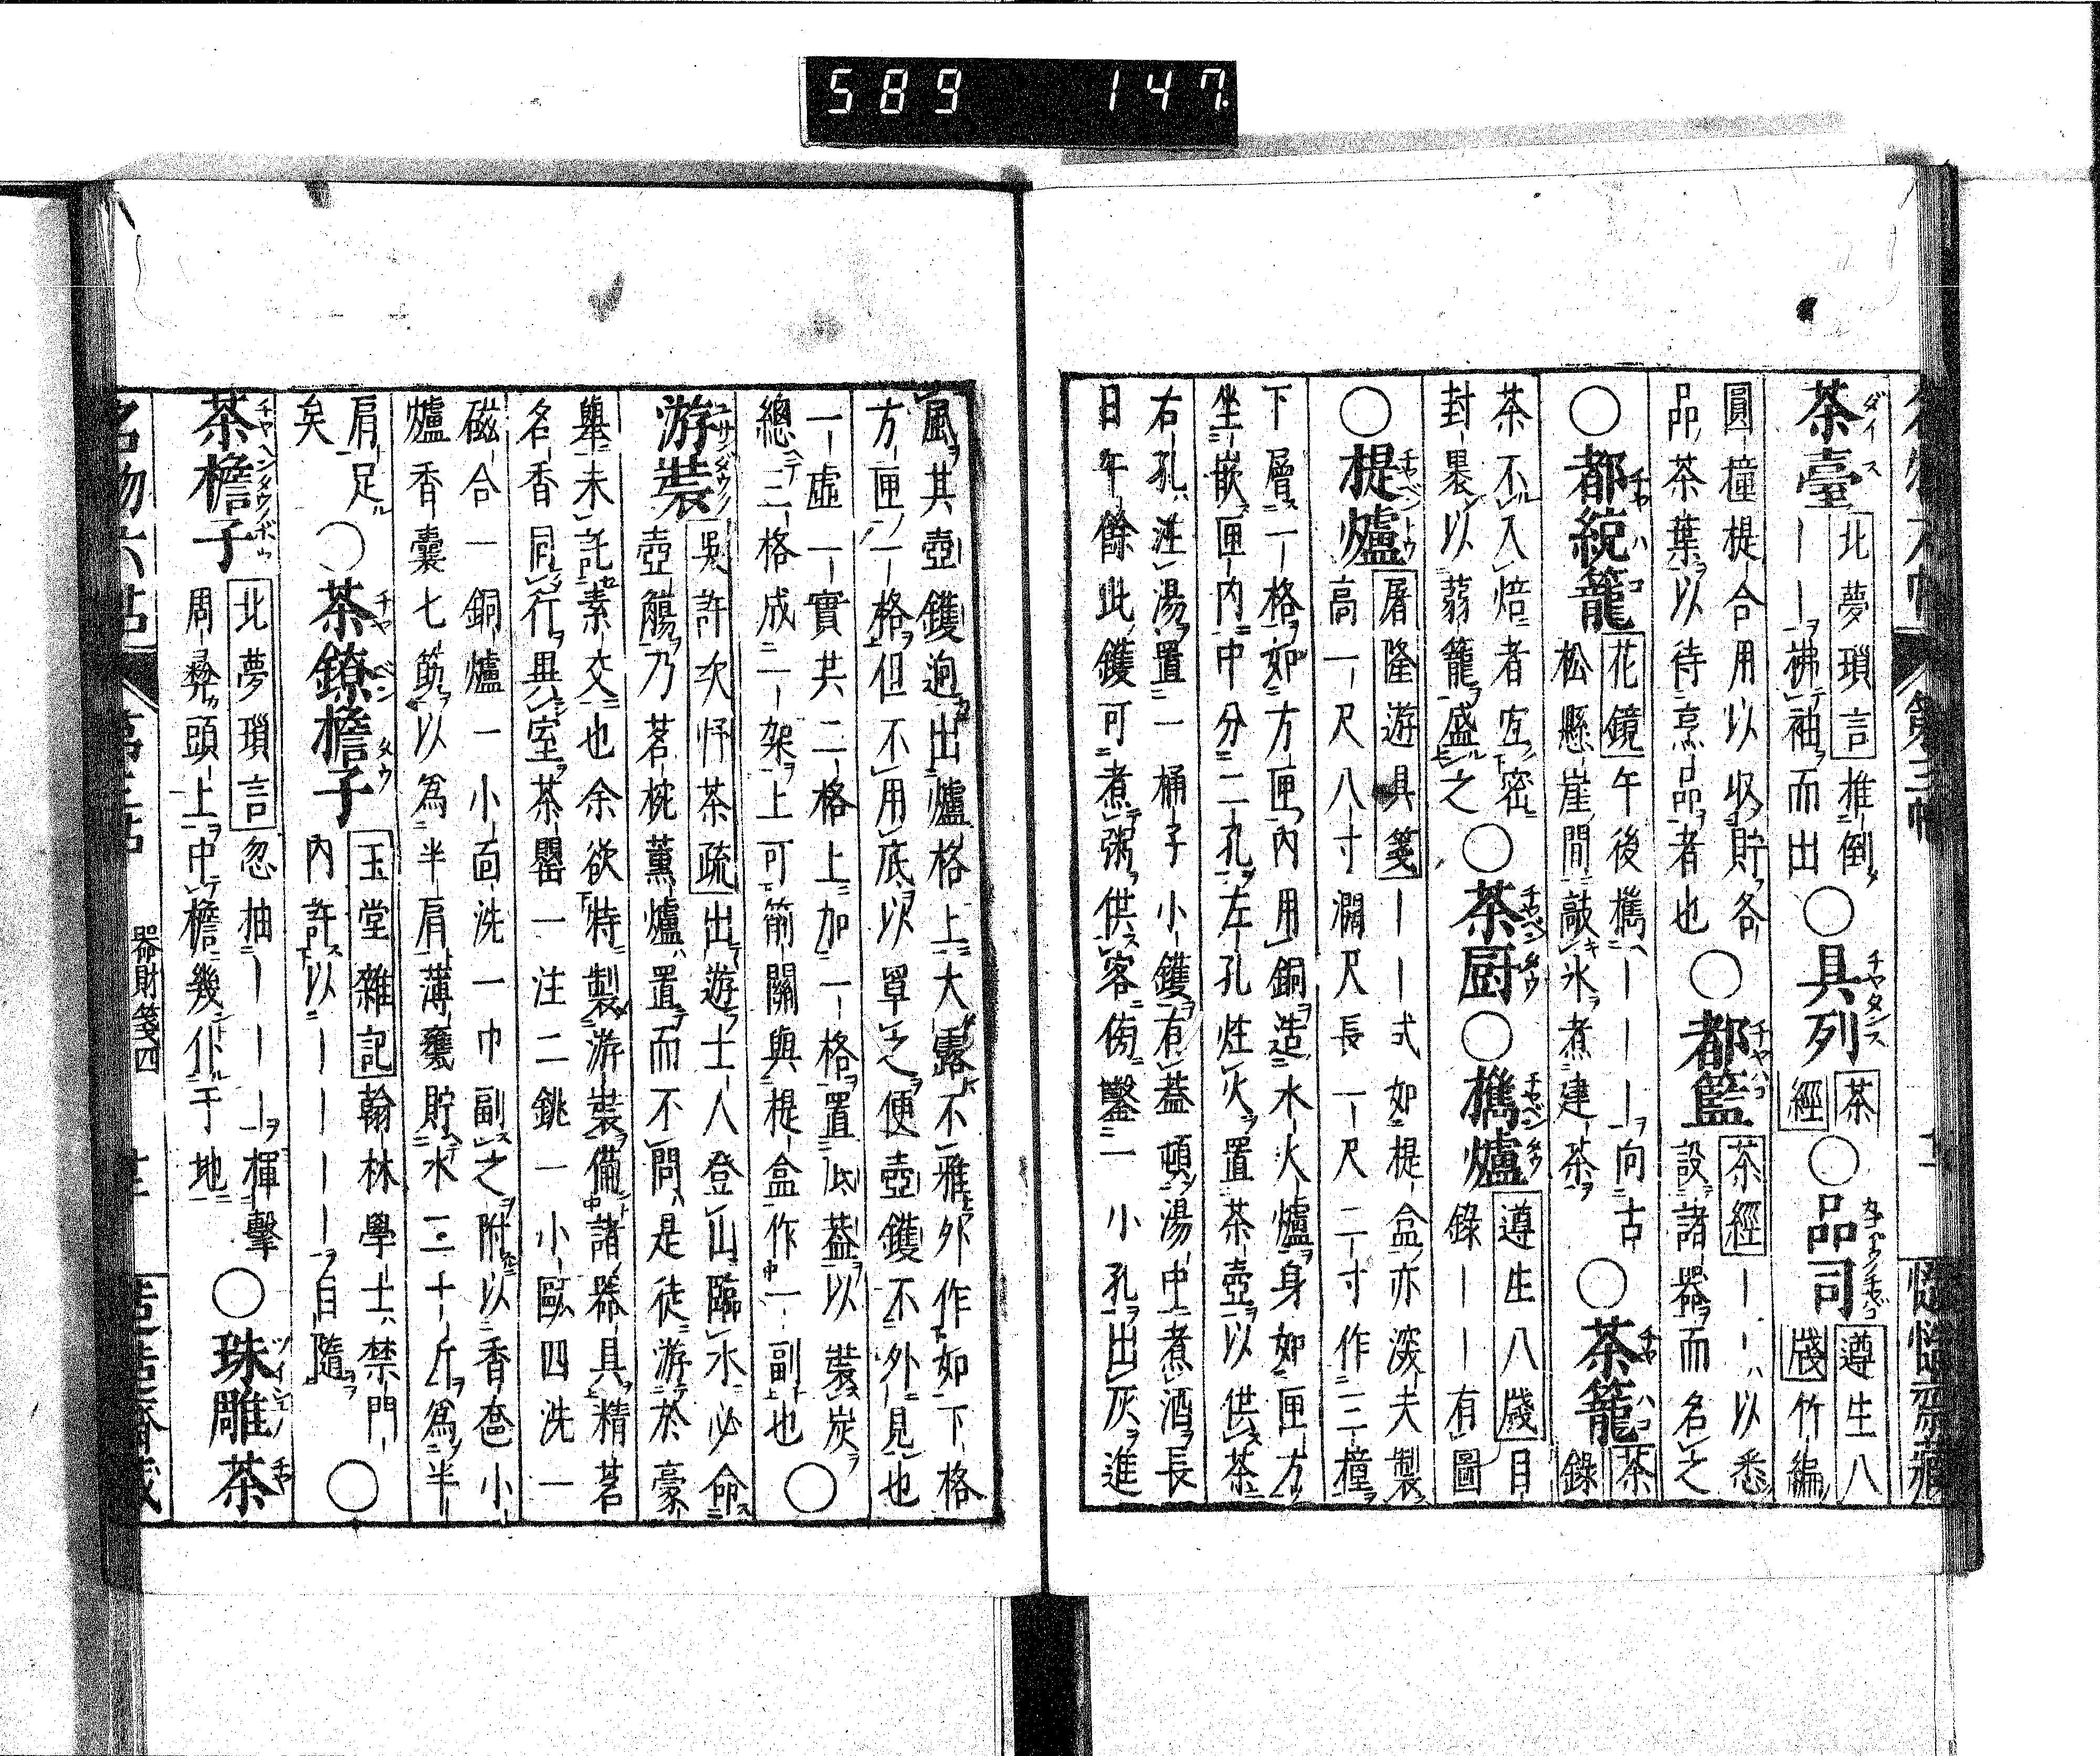 名物六帖 第三帖 十二 慥慥齋藏
茶臺 北夢瑣言 推倒
｜｜拂袖而出 ○具列 茶經 ○品司 遵生八牋 竹編
圓橦提合用以收貯各
品茶葉以待烹品者也 ○都籃 茶經 ｜｜以悉
設諸器而名之
○都統籠 花鏡 午後擕｜｜｜向古
松懸崖間敲氷煮建茶 ○茶籠 茶錄
茶不入焙者宜密
封裹以蒻籠盛之 ○茶厨 ○擕爐 遵生八牋目
錄｜｜有圖
○提爐 屠隆遊具箋 ｜｜式如提盒亦深夫製
高一尺八寸濶尺長一尺二寸作三橦
下層一格如方匣內用銅造水火爐身如匣方
坐嵌匣內中分二孔左孔炷火置茶壺以供茶
右孔注湯置一桶子小鑊有蓋頓湯中煮酒長
日午餘此鑊可煮粥供客傍鑿一小孔出灰進
風其壺鑊迥出爐格上大露不雅外作如下格
方匣一格但不用底以罩之便壺鑊不外見也
一虛一實共二格上加一格置底蓋以裝炭
總三格成一架上可箾關與提盒作一副也 ○
游裝 吳許次忬茶疏 出遊士人登山臨水必命
壺觴乃茗椀薫爐置而不問是徒游於豪
舉未託素交也余欲特製游裝備諸器具精茗
名香同行異室茶罌一注二銚一小甌四洗一
磁合一銅爐一小面洗一巾副之附以香奩小
爐香囊七筯以為半肩薄甕貯水三十斤為半
肩足
矣 ○茶鐐檐子 玉堂雜記 翰林學士禁門
內許以｜｜｜｜自隨 ○
茶檐子 北夢瑣言 忽抽｜｜｜揮擊
周彝頭上中檐幾仆于地 ○珠雕茶
名物六帖 第三帖 器財箋四 十三